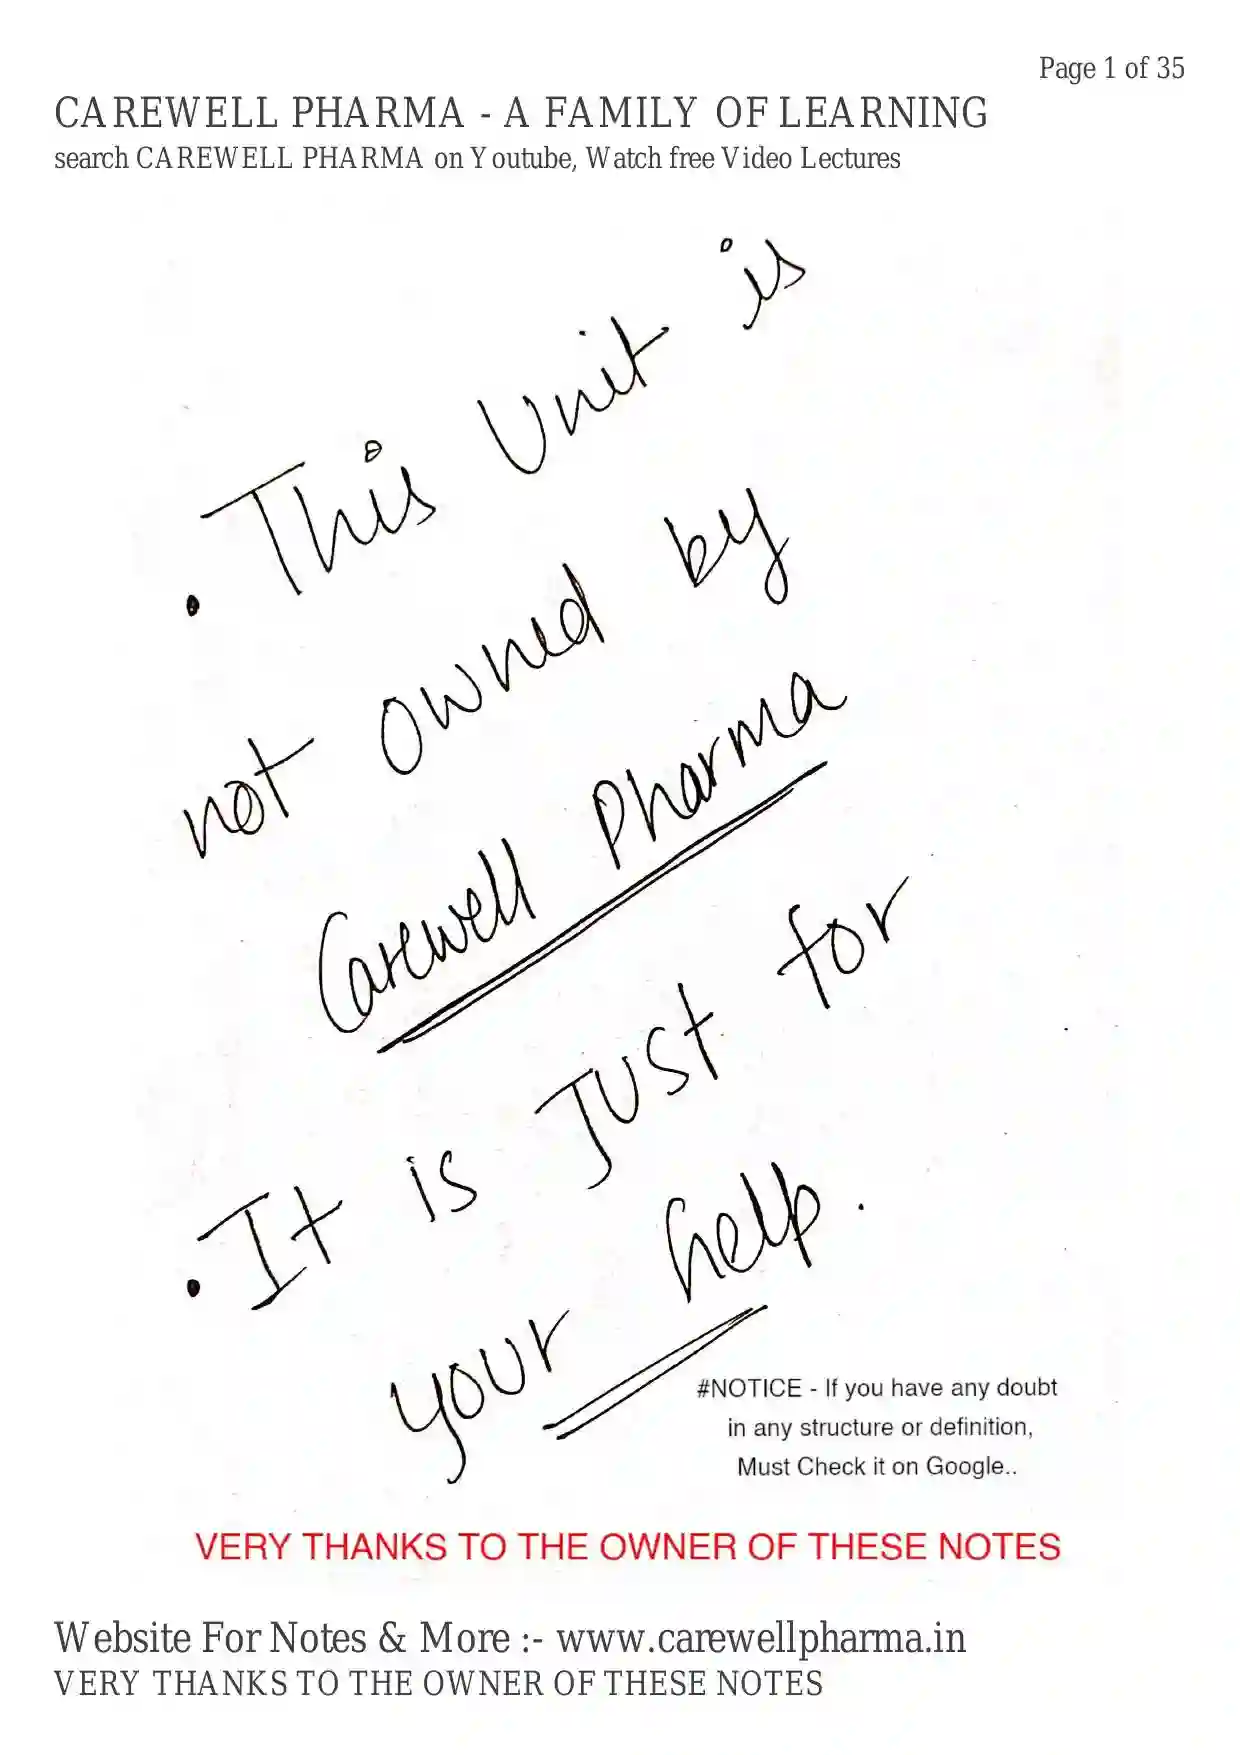 Page 1 of 35
CAREWELL PHARMA - A FAMILY OF LEARNING
search CAREWELL PHARMA on Youtube, Watch free Video Lectures
• This Unit is
not owned by
Carewell Pharma
• It is Just for
your help.
#NOTICE - If you have any doubt
in any structure or definition,
Must Check it on Google..
VERY THANKS TO THE OWNER OF THESE NOTES
Website For Notes & More :- www.carewellpharma.in
VERY THANKS TO THE OWNER OF THESE NOTES